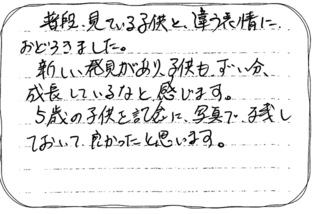 普段、見ている子供と、違う表情に
おどろきました。
新しい発見があり、子供も ずい分、
成長しているなと感じます。
5歳の子供を記念に、写真で残し
ておいて良かったと思います。